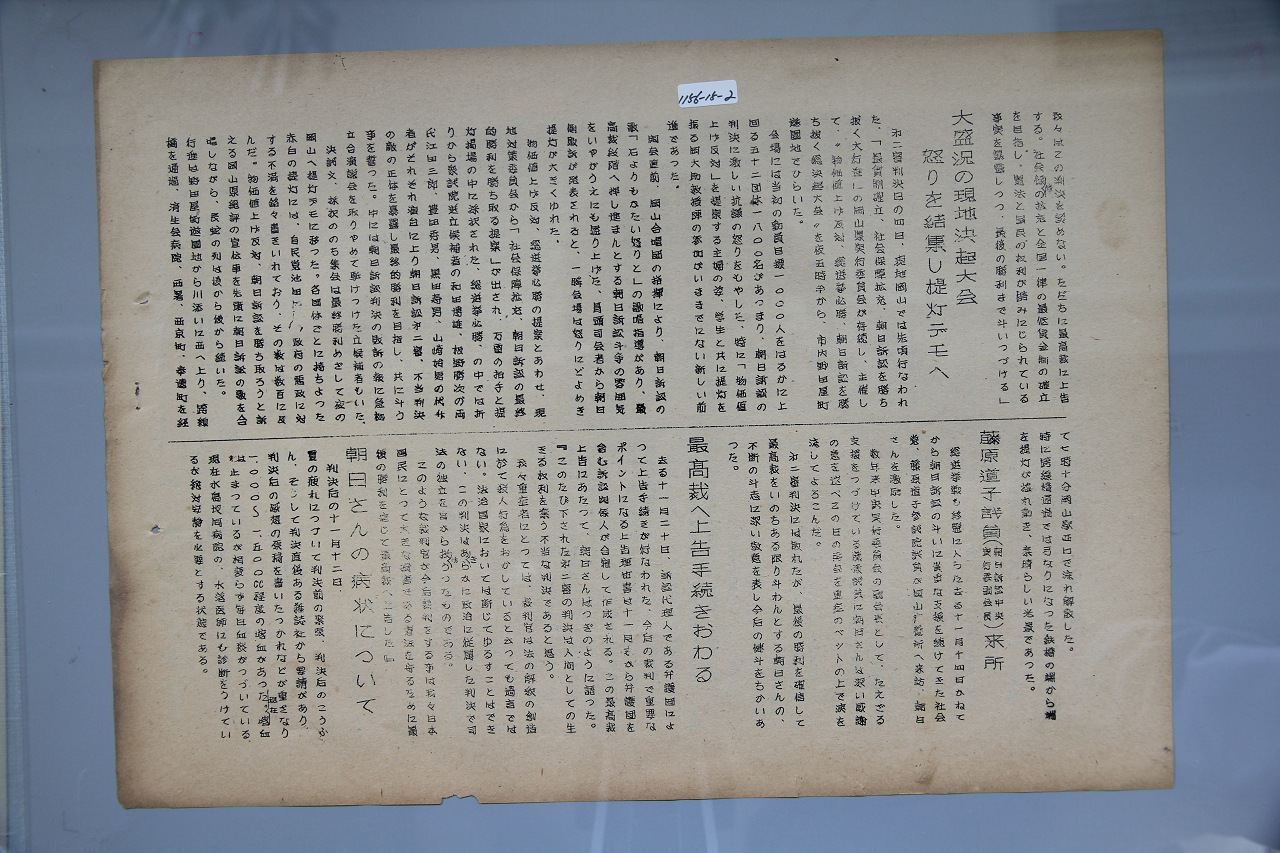 1156-15-2
する。社会保障の拡充と全国一律の最低賃金制の確立
を目指し、憲法と国民の权利が踏みにじられている
事実を暴露しつつ、最後の勝利まで斗いつづける」
大盛況の現地決起大会
怒りを結集し提灯デモへ
オ二審判決日の四日、現地岡山では先頃行なわれ
た、「最賃制確立、社会保障拡充、朝日訴訟を勝ち
抜く大行進」の岡山県実行委員会が存続し、主催し
て、〝物価値上げ反対、総選挙必勝、朝日訴訟を勝
ち抜く総決起大会〟を夜五時半から、市内野田屋町
遊園地でひらいた。
会場には当初の動員目標一〇〇〇人をはるかに上
回る五十二団体一八〇〇名があつまり、朝日訴訟の
判決に激しい抗議の怒りをもやした、特に「物価値
上げ反対」を提案する主婦の姿、学生と共に提灯を
振る岡大助教授等の参加がいままでにない新しい前
進であった。
開会直前、岡山合唱団の指揮により、朝日訴訟の
歌「石よりもかたい怒りと」の歌唱指導があり、最
高裁段階へ押し進まんとする朝日訴訟斗争の雰囲気
をいやがうえにも盛り上げた、員頭司会者から朝日
敗訴が発表されると、一瞬会場は怒りにどよめき
提灯が大きくゆれた。
物価値上げ反対、総選挙必勝の提案とあわせ、現
地対策委員会から「社会保障拡充、朝日訴訟の最終
的勝利を勝ち取る提案」が出され、万雷の拍手と提
灯揚場の中に採択された、総選挙必勝、の中では折
りから衆議院選立候補者の和田博雄、板野勝次の両
代江田三郎、豊田秀男、黒田寿男、山崎始男の代弁
者がそれぞれ演台に上り朝日訴訟オ二審、不当判決
の敵の正体を暴露し最終的勝利を目指し、共に斗う
事を誓った。中には朝日訴訟判決の敗訴の報に急拠
立合演説会を取りやめて駆けつけた立候補者もいた。
決議文、採択ののち集会は最終勝利めざして夜の
岡山へ提灯デモに移った。各団体ごとに持ちよった
赤白の提灯には、自民党池田
する不満を銘々書きいれており、その数は数百に及
んだ。物価値上げ反対、朝日訴訟を勝ち取ろうと訴
える岡山県総評の宣伝車を先頭に朝日訴訟の歌を合
唱しながら、長蛇の列は後から後から続いた。
行進は野田屋町遊園地から川添いに西へ上り、路線
橋を通過、済生会病院、西署、西京町、奉還町を経
て七時十分岡山駅西口で流れ解散した。
時に路線橋通過では弓なりになった鉄橋の端から端
を提灯が揺れ動き、素晴らしい光景であった。
藤原道子議員(朝日訴訟中央実行委副委員長)来所
総選挙戦も終盤に入った去る十一月十四日かねて
から朝日訴訟の斗いに貴重な支援を続けてきた社会
党、藤原道子参議院議員が岡山療養所へ来訪、朝日
さんを激励した。
数年来中央実行委員会の副会長として、たえざる
支援をつづけている藤原議員に朝日さんは深い感謝
の意を述べこの日の再会を重症のベットの上で涙を
流してよろこんだ。
オ二審判決には敗れたが、最後の勝利を確信して
最高裁をいのちある限り斗わんとする朝日さんの、
不断の斗志に深い敬意を表し今后の健斗をちかいあ
った。
最高裁へ上告手続きおわる
去る十一月二十日、訴訟代理人である弁護団によ
って上告手続きが行なわれた、今后の裁判で重要な
ポイントになる上告理由書は十一月末から弁護団を
含む訴訟関係人が合宿して作成される。この最高裁
上告にあたって、朝日さんはつぎのように語った。
『このたび下されたオ二審の判決は人間としての生
きる权利を奪う不当な判決であると思う。
我々重症者にとっては、裁判官は法の解釈の創造
に於て殺人行為をおかしているといっても過言では
ない。法治国家においては断じてゆるすことはでき
ない、この判決はあきらかに政治に従属した判決で司
法の独立を自から放うったものである。
このような裁判官が今后裁判をする事は我々日本
国民にとって大きな脅威である憲法を守るために最
後の勝利を信じて最高裁へ上告した』
朝日さんの病状について
判決后の十一月十二日、
冒の疲れについで判決前の緊張、判決后のこうふ
ん、そして判決直後ある雑誌社から要請があり、
判決后の感想の原稿を書いたつかれなどが重さなり
一、〇〇〇〜一、五〇〇cc程度の喀血があった。喀血
現在
は止まっているが相変らず毎日血痰がつづいている。
現在水島現病院の、水落医師にも診断をうけてい
るが絶対安静を必要とする状態である。